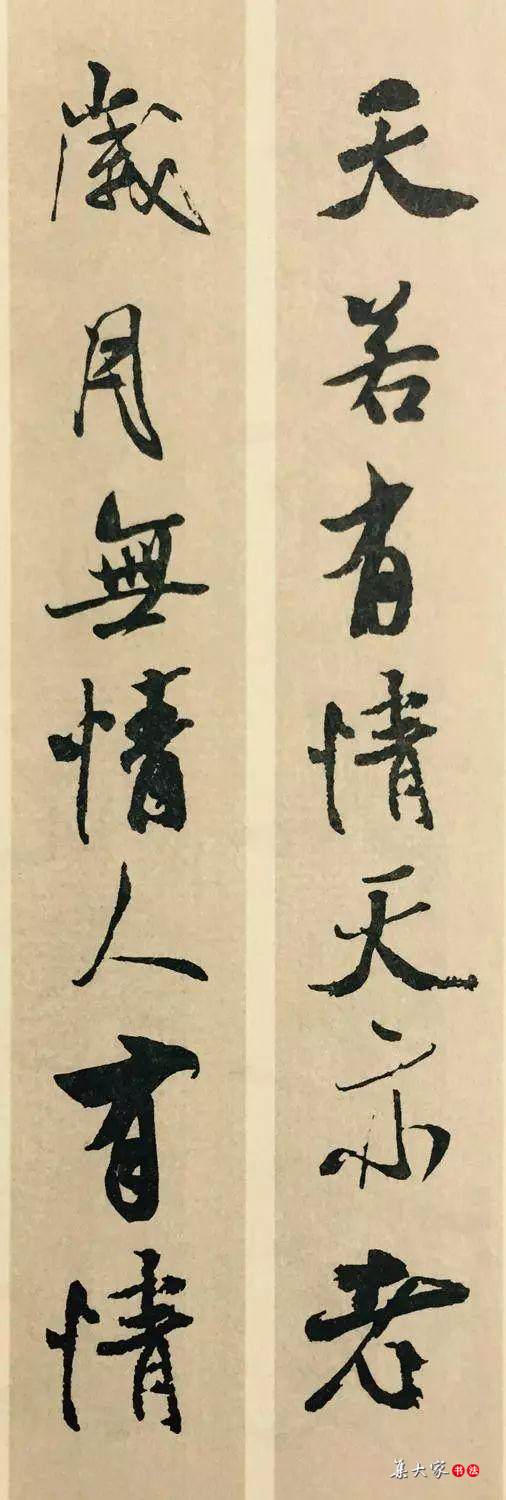 天若有情天亦老
歲月無情人有情
集大家书法